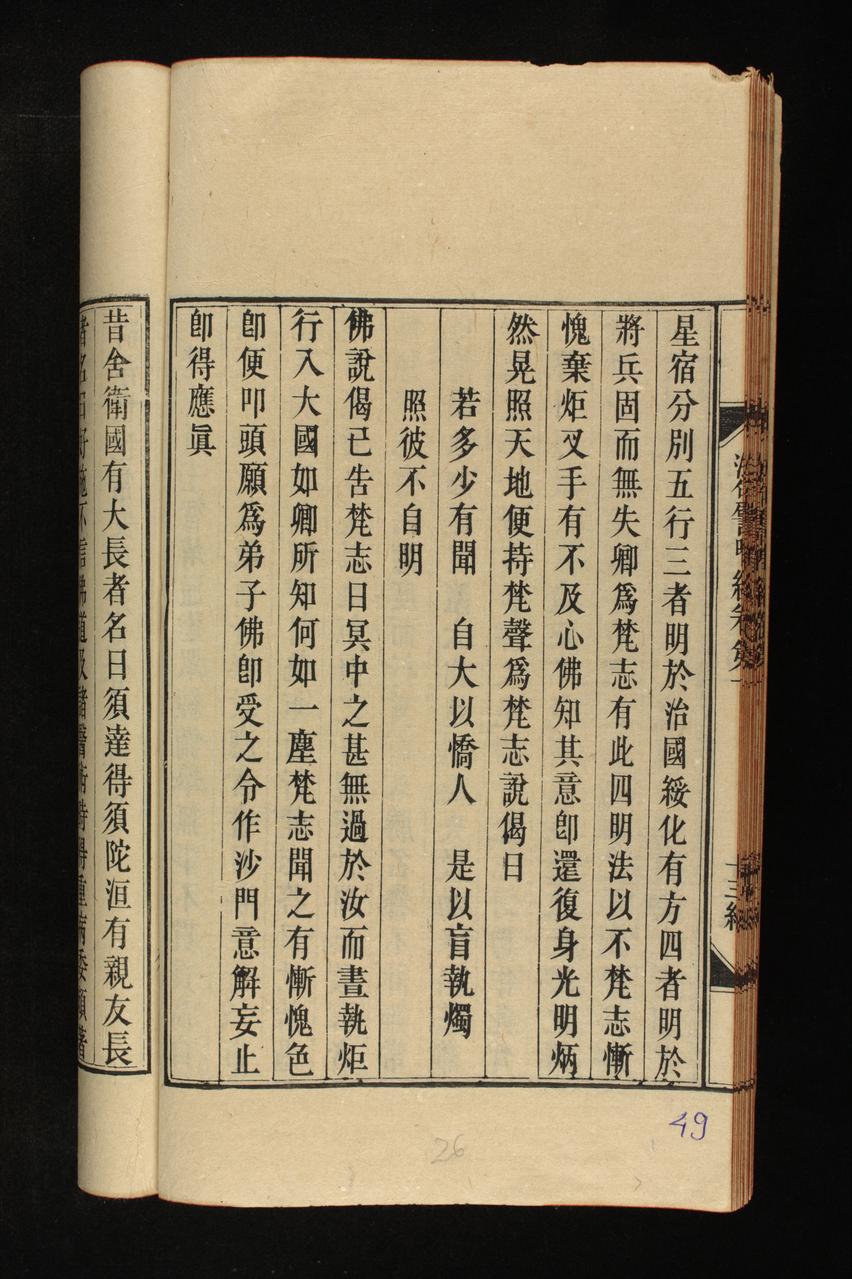 星宿分別五行三者明於治國綏化有方四者明於
將兵固而無失卿爲梵志有此四明法以不梵志慚
愧棄炬叉手有不及心佛知其意卽還復身光明炳
然晃照天地便持梵聲爲梵志說偈曰
若多少有聞 自大以憍人 是以盲執燭
照彼不自明
佛說偈已告梵志曰冥中之甚無過於汝而晝執炬
行入大國如卿所知何如一塵梵志聞之有慚愧色
卽便叩頭願爲弟子佛卽受之令作沙門意解妄止
卽得應眞
昔舍衛國有大長者名曰須達得須陀洹有親友長
49
26